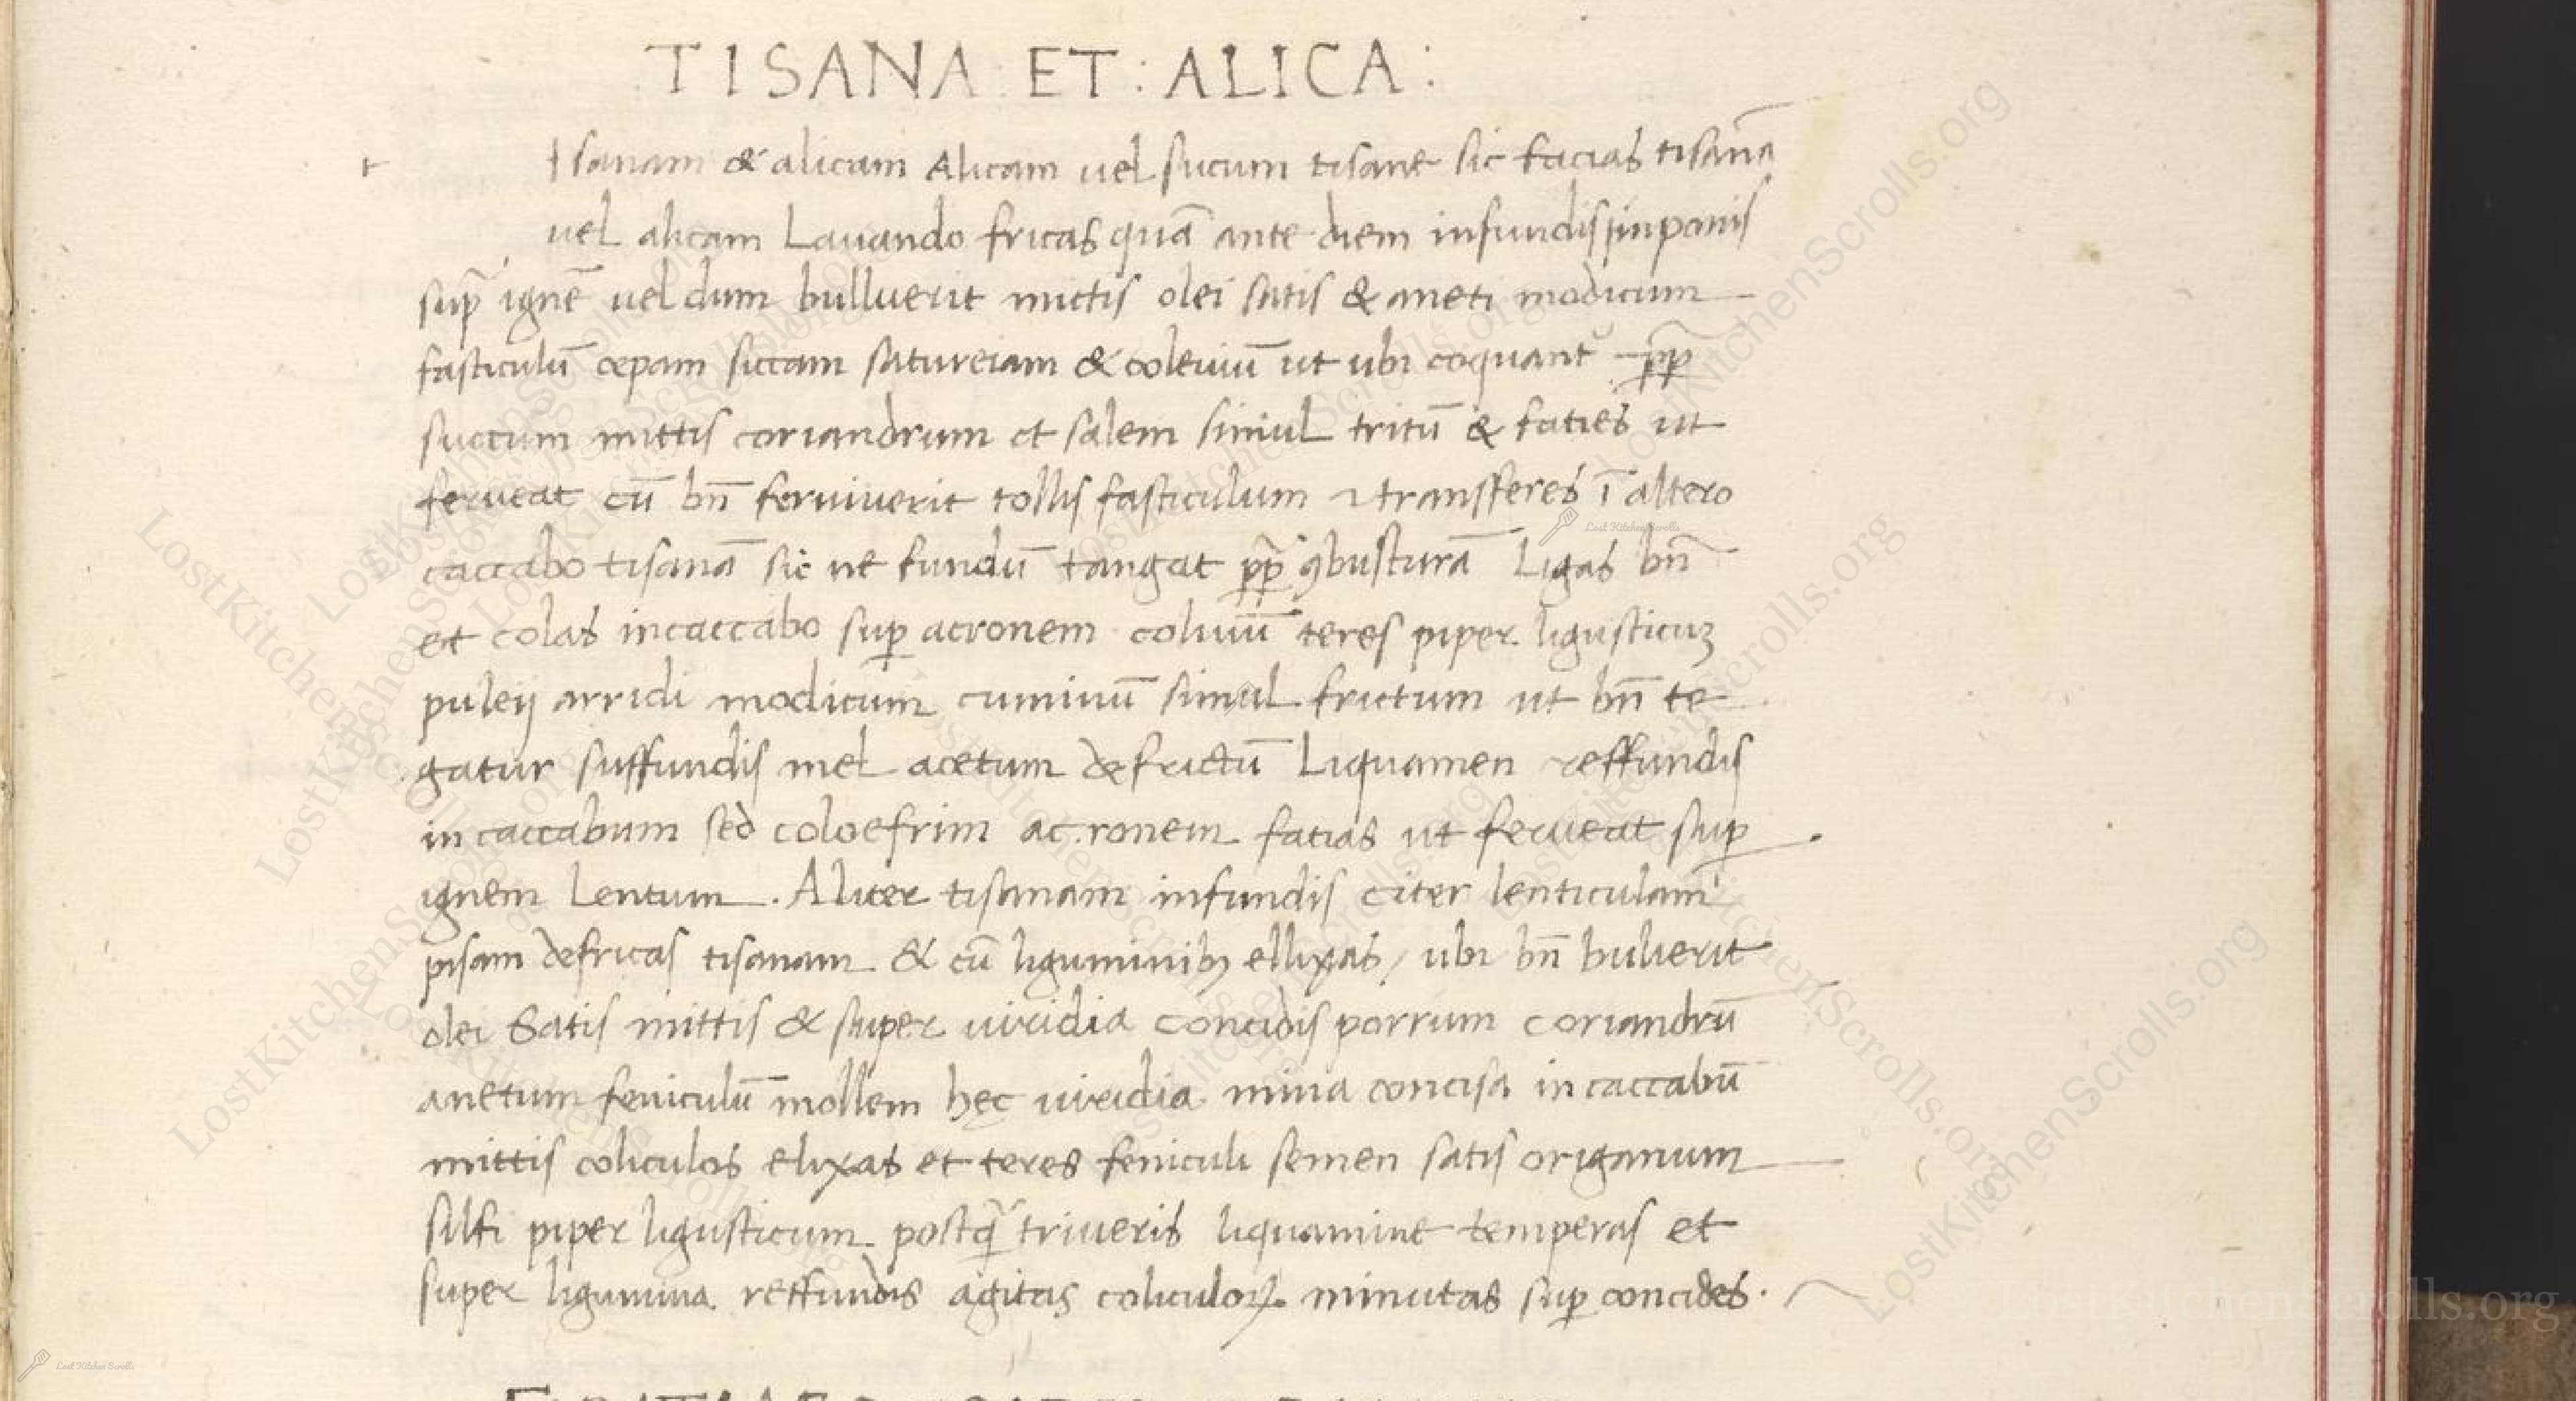 TISANA ET : ALICA :
Isanam & alicam Alicam uel sucum tisane sic facias tisanā
uel alicam Lauando fricas quā ante diem infundis inponis
sup̄ ignē uel dum bulluerit mictis olei satis & aneti modicum
fasticulū cepam siccam satureiam & coleuiū ut ubi coquant᷑ pp̄
succum mittis coriandrum et salem simul tritū & faties ut
ferueat cū bn̄ feruiuerit tollis fasticulum ⁊ transferes ī altero
caccabo tisanā sic ne fundū tangat pp̄ ꝯbusturā Ligas bn̄
et colas incaccabo suꝑ acronem coliuiū teres piper ligusticuꝫ
puleij arridi modicum cuminū simul frictum ut bn̄ te
gatur suffundis mel acetum defrictū Liquamen reffundis
in caccabum sed coloefrim ac ronem fatias ut ferueat suꝑ
ignem Lentum . Aliter tisanam infundis citer lenticulam
pisam defricas tisanam & cū liguminibꝫ ellixas / ubi bn̄ bulierit
olei Satis mittis & super uiridia concidis porrum coriandrū
anetum feniculū mollem hęc uiridia mina concisa in caccabū
mittis coliculos elixas et teres feniculi semen satis origanum
silfi piper ligusticum postꝗ̄ triueris liquamine temperas et
super ligumina reffundis agitas coliculoꝝ minutas suꝑ concides .
LostKitchenScrolls.org
Lost Kitchen Scrolls